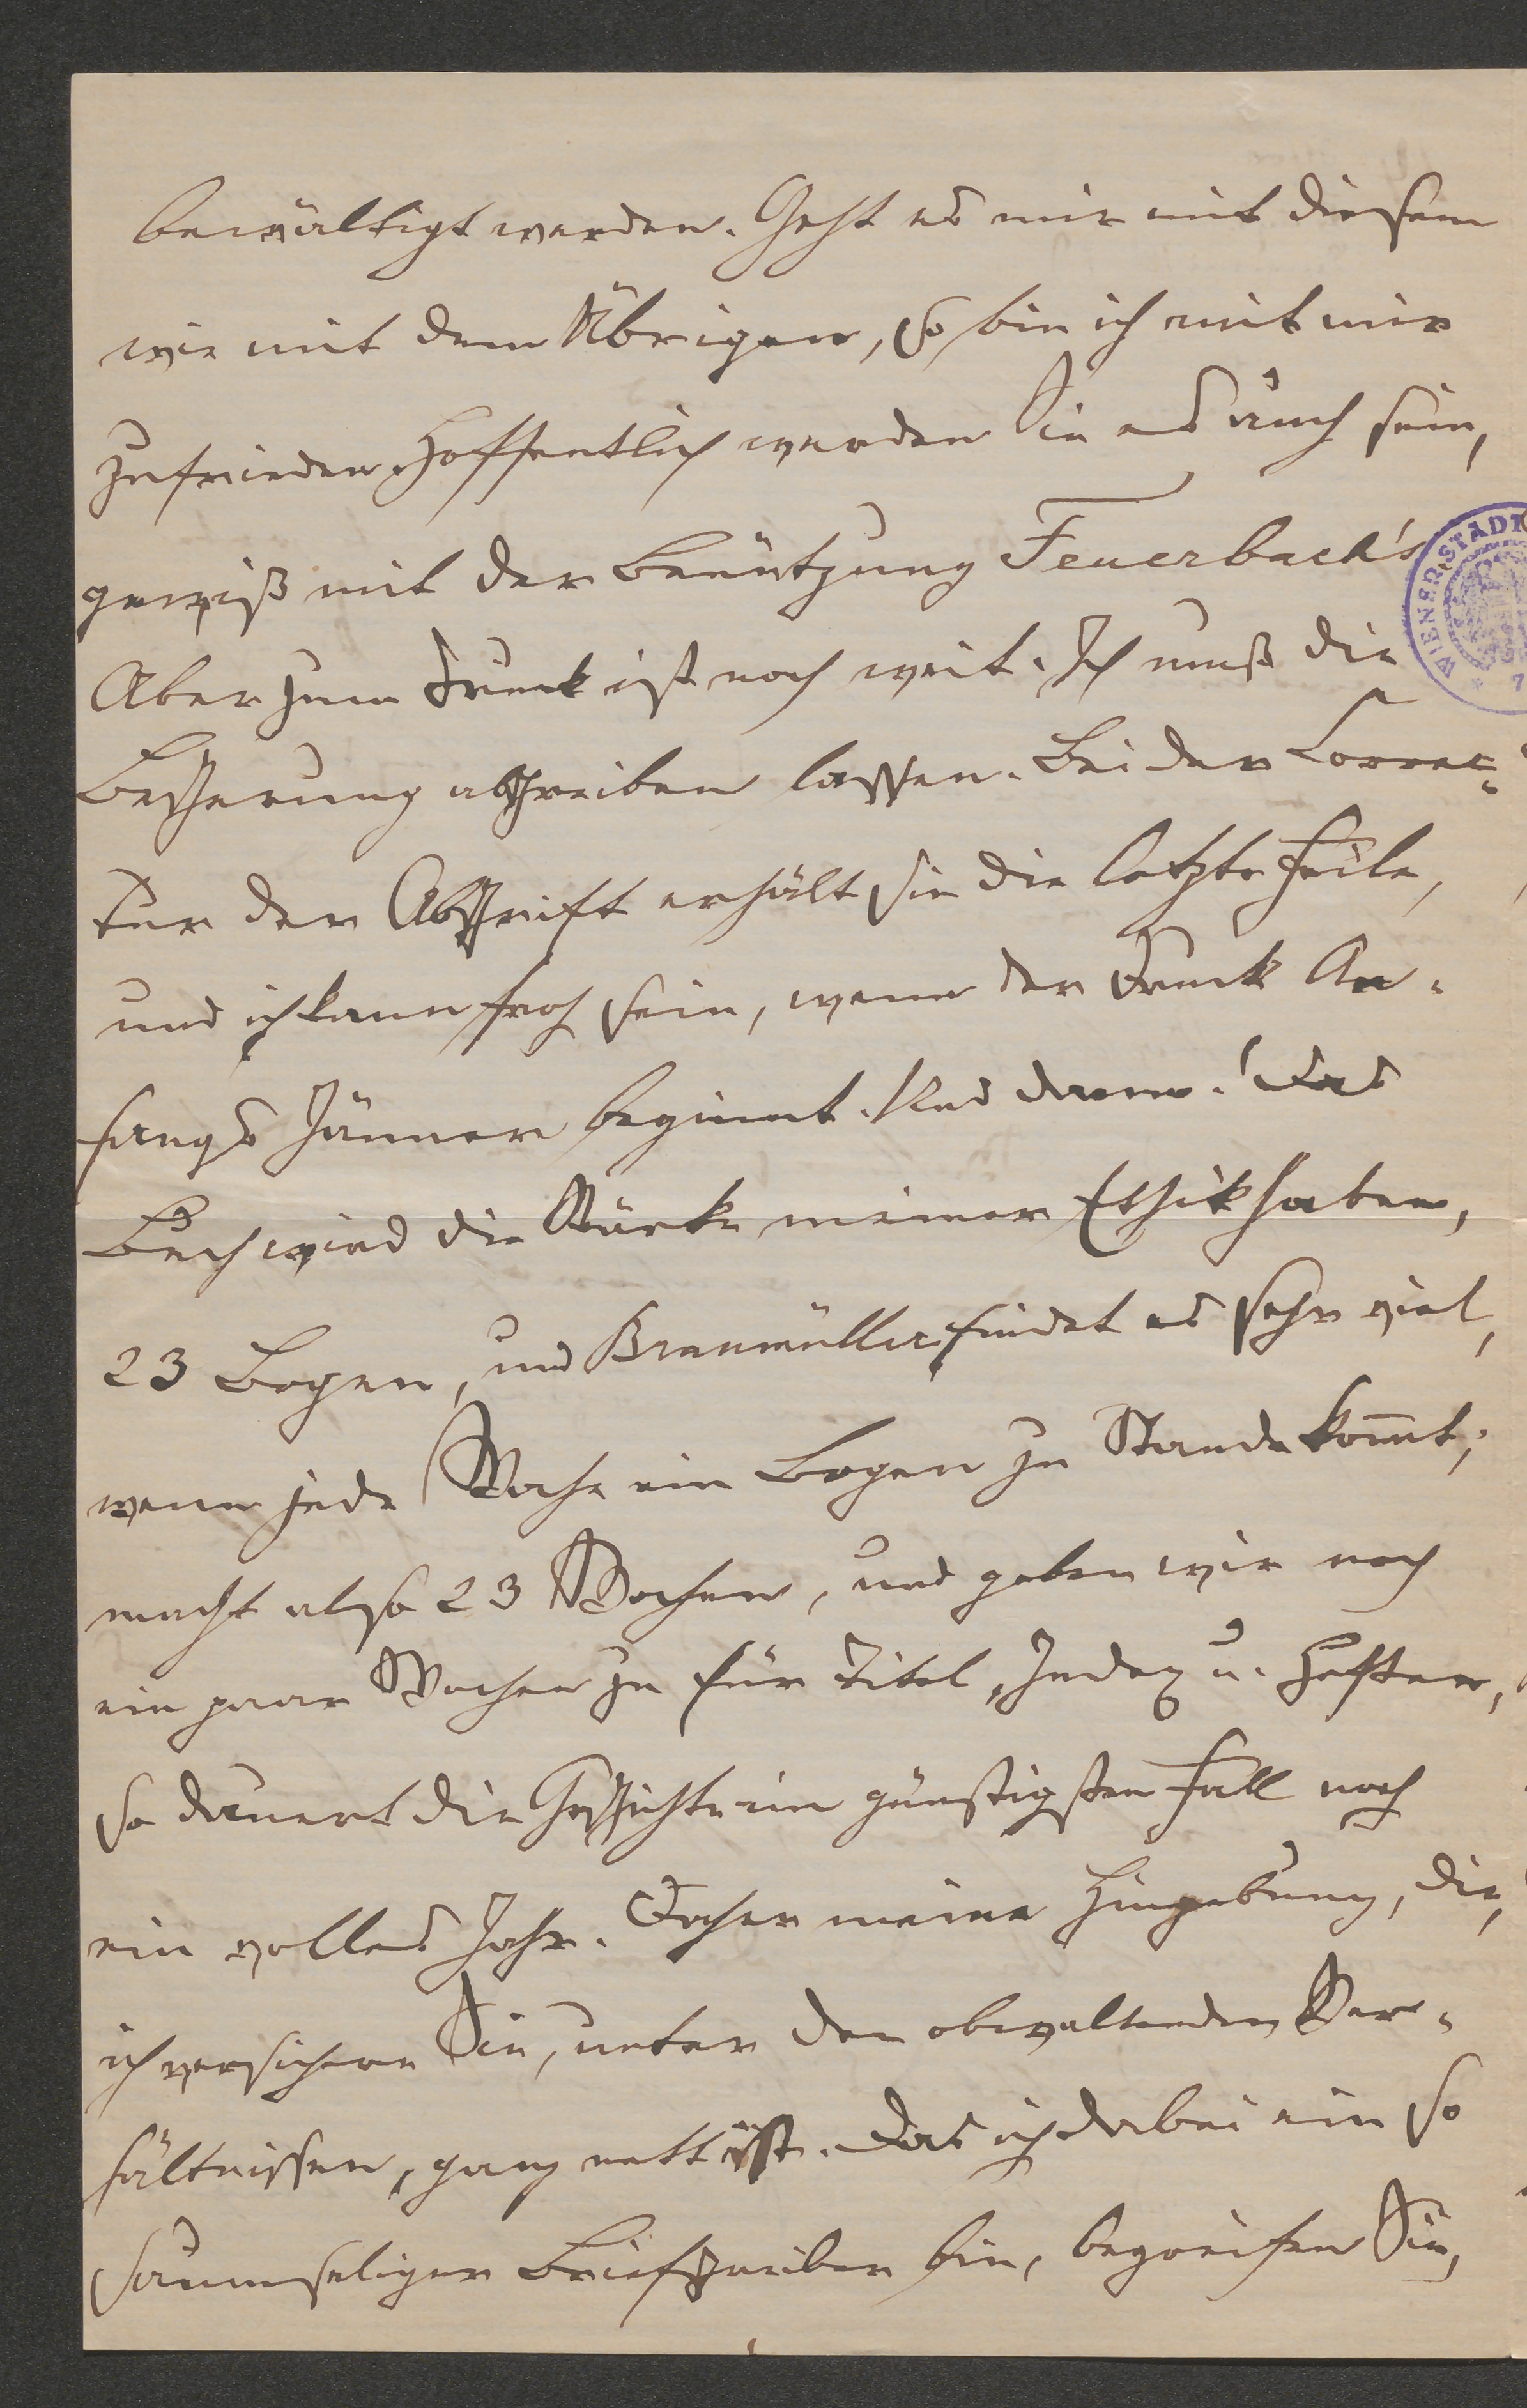 bewältigt werden. Geht es mir mit diesem
wie mit dem Übrigen, so bin ich mit mir
zufrieden. Hoffentlich werden Sie es auch sein,
gewiß mit der Benützung Feuerbach's
Aber zum Druck ist noch weit. Ich muß die
Besserung abschreiben lassen. Bei der Correc-
tur der Abschrift erhält sie die letzte Feile,
und ich kann froh sein, wenn der Druck An-
fangs Jänner beginnt. Und dann! Das
Buch wird die Stärke meiner Ethik haben,
23 Bogen, und Braumüller findet es sehr viel,
wenn jede Woche ein Bogen zu Stande kom̄t;
macht also 23 Wochen, und geben wir noch
ein paar Wochen zu für Titel, Index u. Heften,
so dauert die Geschichte im günstigsten Fall noch
ein volles Jahr. Daher meine Hingebung, die,
ich versichere Sie, unter den obwaltenden Ver-
hältnissen, ganz nett ist. Das ich dabei ein so
saumseliger Briefschreiber bin, begreifen Sie,
WIENER STADT
7